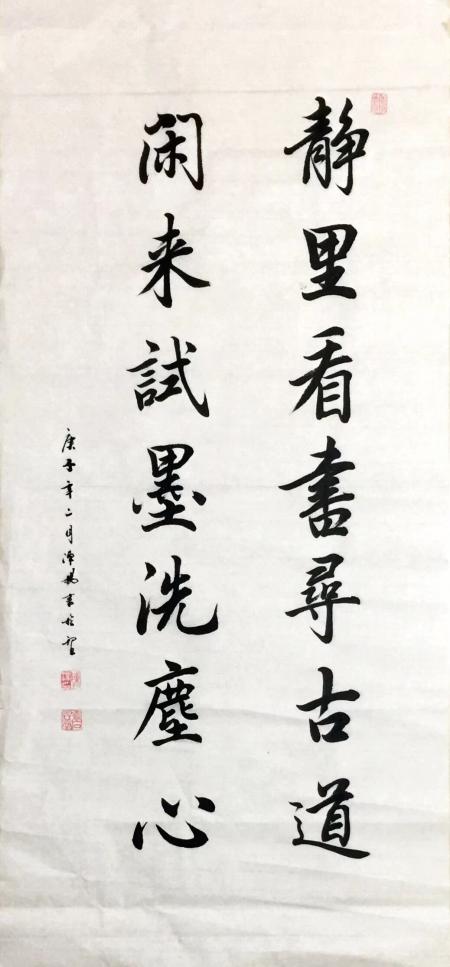 静里看書尋古道
闲来試墨洗塵心
庚子年二月